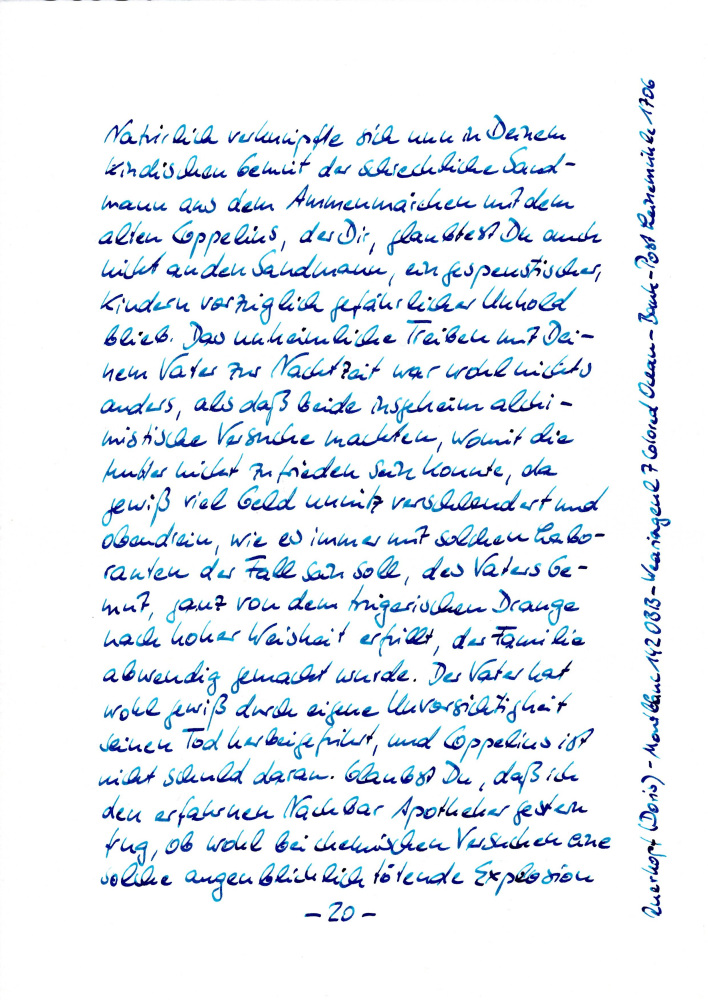 Natürlich verknüpfte sich nun in Deinem
kindischen Gemüt der schreckliche Sand-
mann aus dem Ammenmärchen mit dem
alten Coppelius, der Dir, glaubtest Du auch
nicht an den Sandmann, ein gespenstischer,
Kindern vorzüglich gefährlicher Unhold
blieb. Das unheimliche Treiben mit Dei-
nem Vater zur Nachtzeit war wohl nichts
anders, als daß beide insgeheim alchi-
mistische Versuche machten, womit die
Mutter nicht zufrieden sein konnte, da
gewiß viel Geld unnütz verschleudert und
obendrein, wie es immer mit solchen Labo-
ranten der Fall sein soll, des Vaters Ge-
müt, ganz von dem trügerischen Drange
nach hoher Weisheit erfüllt, der Familie
abwendig gemacht wurde. Der Vater hat
wohl gewiß durch eigene Unvorsichtigkeit
seinen Tod herbeigeführt, und Coppelius ist
nicht schuld daran. Glaubst Du, daß ich
den erfahrnen Nachbar Apotheker gestern
frug, ob wohl bei chemischen Versuchen eine
solche augenblicklich tötende Explosion
- 20 -
Querkopf (Doris) - Montblanc 142 OBB - Wearingeul 7 Colored Ocean - Bank-Post 1706